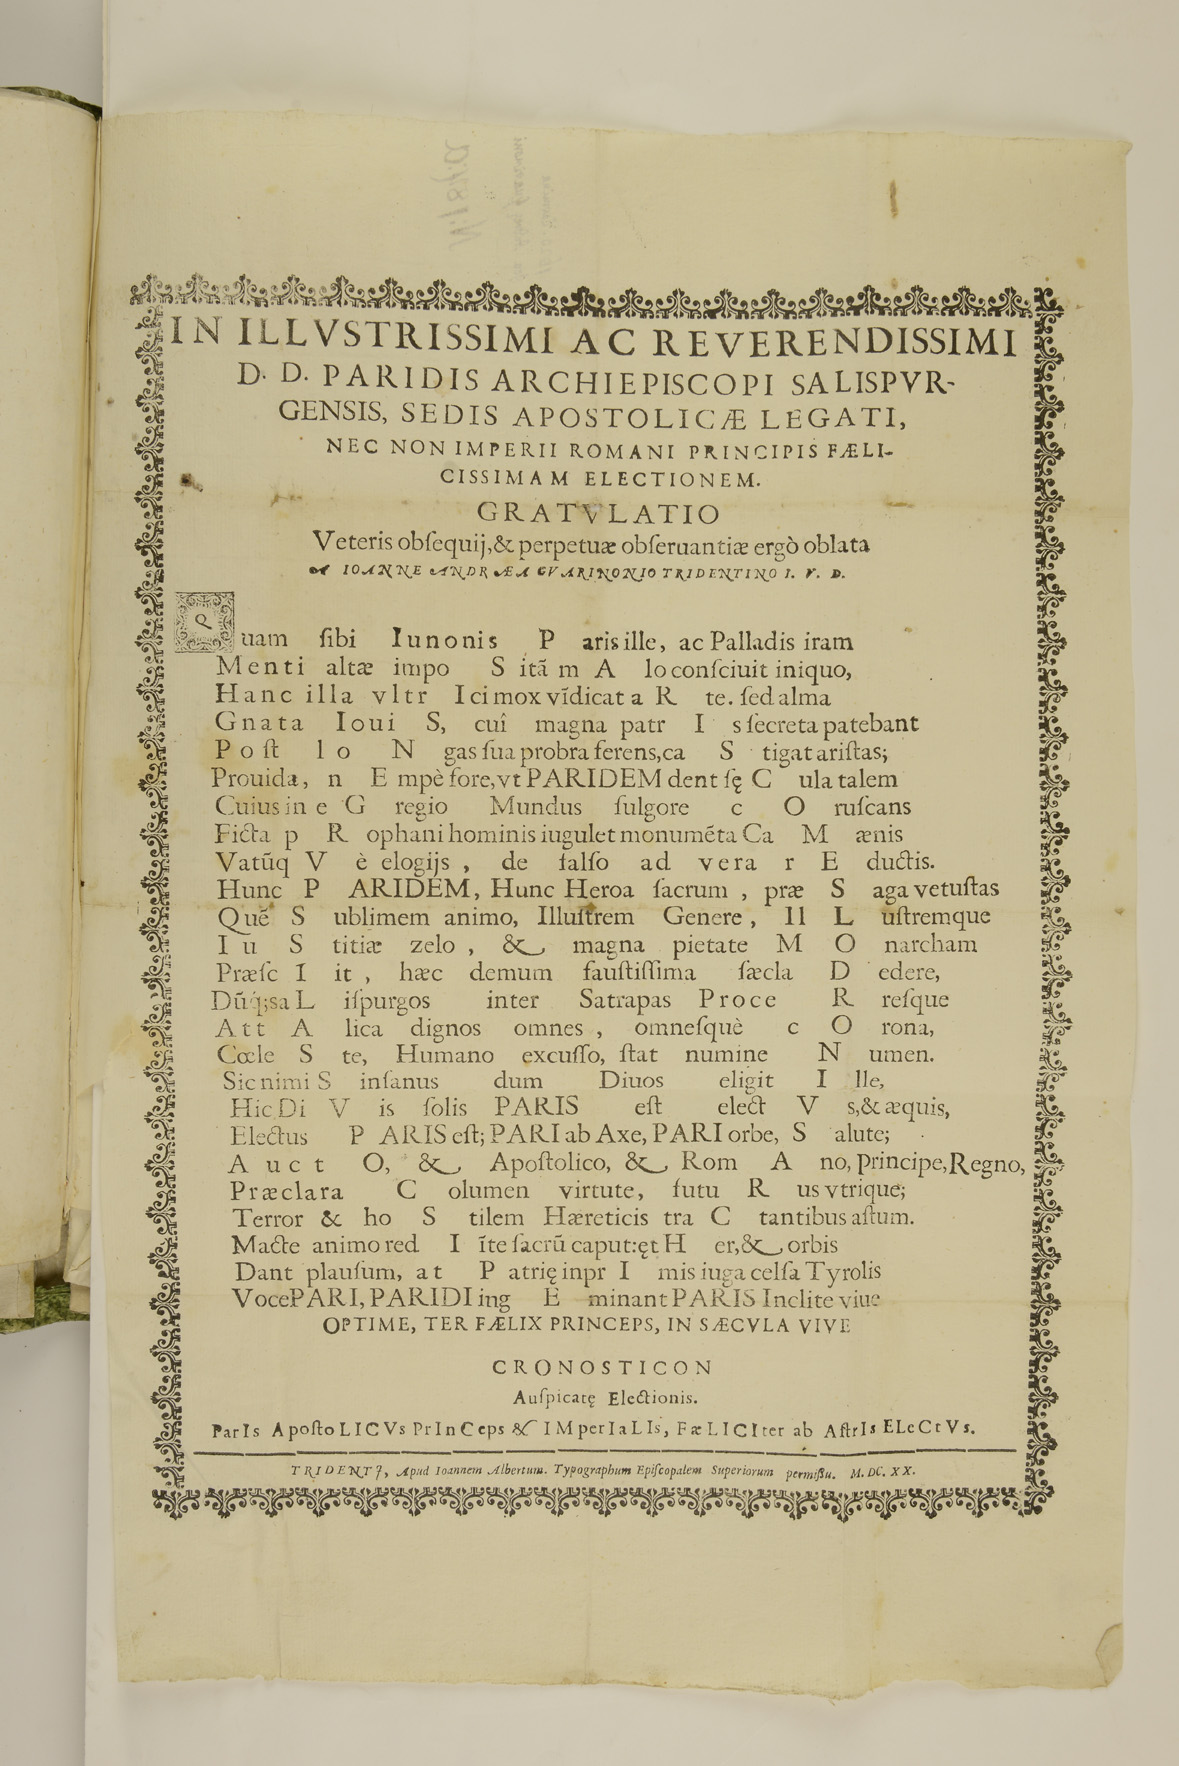 IN ILLVSTRISSIMI AC REVERENDISSIMI
D. D. PARIDIS ARCHIEPISCOPI SALISPVR-
GENSIS, SEDIS APOSTOLICÆ LEGATI,
NEC NON IMPERII ROMANI PRINCIPIS FÆLI-
CISSIMAM ELECTIONEM.
GRATVLATIO
Veteris obſequij, & perpetuæ obſeruantiæ ergò oblata
A IOANNE ANDRÆA GVARINONIO TRIDENTINO I. V. D.
Quam ſibi Iunonis P aris ille, ac Palladis iram
Menti altæ impo S itã m A lo conſciuit iniquo,
Hanc illa vltr I ci mox vĩdicat a R te. ſed alma
Gnata Ioui S, cui magna patr I s ſecreta patebant
Poſt lo N gas ſua probra ferens, ca S tigat ariſtas;
Prouida, n E mpè fore, vt PARIDEM dent ſę C ula talem
Cuius in e G regio Mundus fulgore c O ruſcans
Ficta p R ophani hominis iugulet monumẽta Ca M ænis
Vatũq V è elogijs, de falſo ad vera r E ductis.
Hunc P ARIDEM, Hunc Heroa ſacrum, præ S aga vetuſtas
Quẽ S ublimem animo, Illuſtrem Genere, Il L uſtremque
Iu S titiæ zelo, & magna pietate M O narcham
Præſc I it, hæc demum fauſtiſſima ſæcla D edere,
Dũq;sa L iſpurgos inter Satrapas Proce R reſque
Att A lica dignos omnes, omneſquè c O rona,
Cœle S te, Humano excuſſo, ſtat numine N umen.
Sic nimi S inſanus dum Diuos eligit I lle,
Hic Di V is ſolis PARIS eſt elect V s, & æquis,
Electus P ARIS eſt; PARI ab Axe, PARI orbe, S alute;
Auct O, & Apoſtolico, & Rom A no, Principe, Regno,
Præclara C olumen virtute, futu R us vtrique;
Terror & ho S tilem Hæreticis tra C tantibus aſtum.
Macte animo red I ĩte ſacrũ caput: ęt H er, & orbis
Dant plauſum, at P atrię in pr I mis iuga celſa Tyrolis
Voce PARI, PARIDI ing E minant PARIS Inclite viue
OPTIME, TER FÆLIX PRINCEPS, IN SÆCVLA VIVE
CRONOSTICON
Auſpicatę Electionis.
ParIs ApoſtoLICVs PrInCeps & IMperIaLIs, FæLICIter ab AſtrIs ELeCtVs.
TRIDENTI, Apud Ioannem Albertum. Typographum Epiſcopalem Superiorum permiſſu. M. DC. XX.